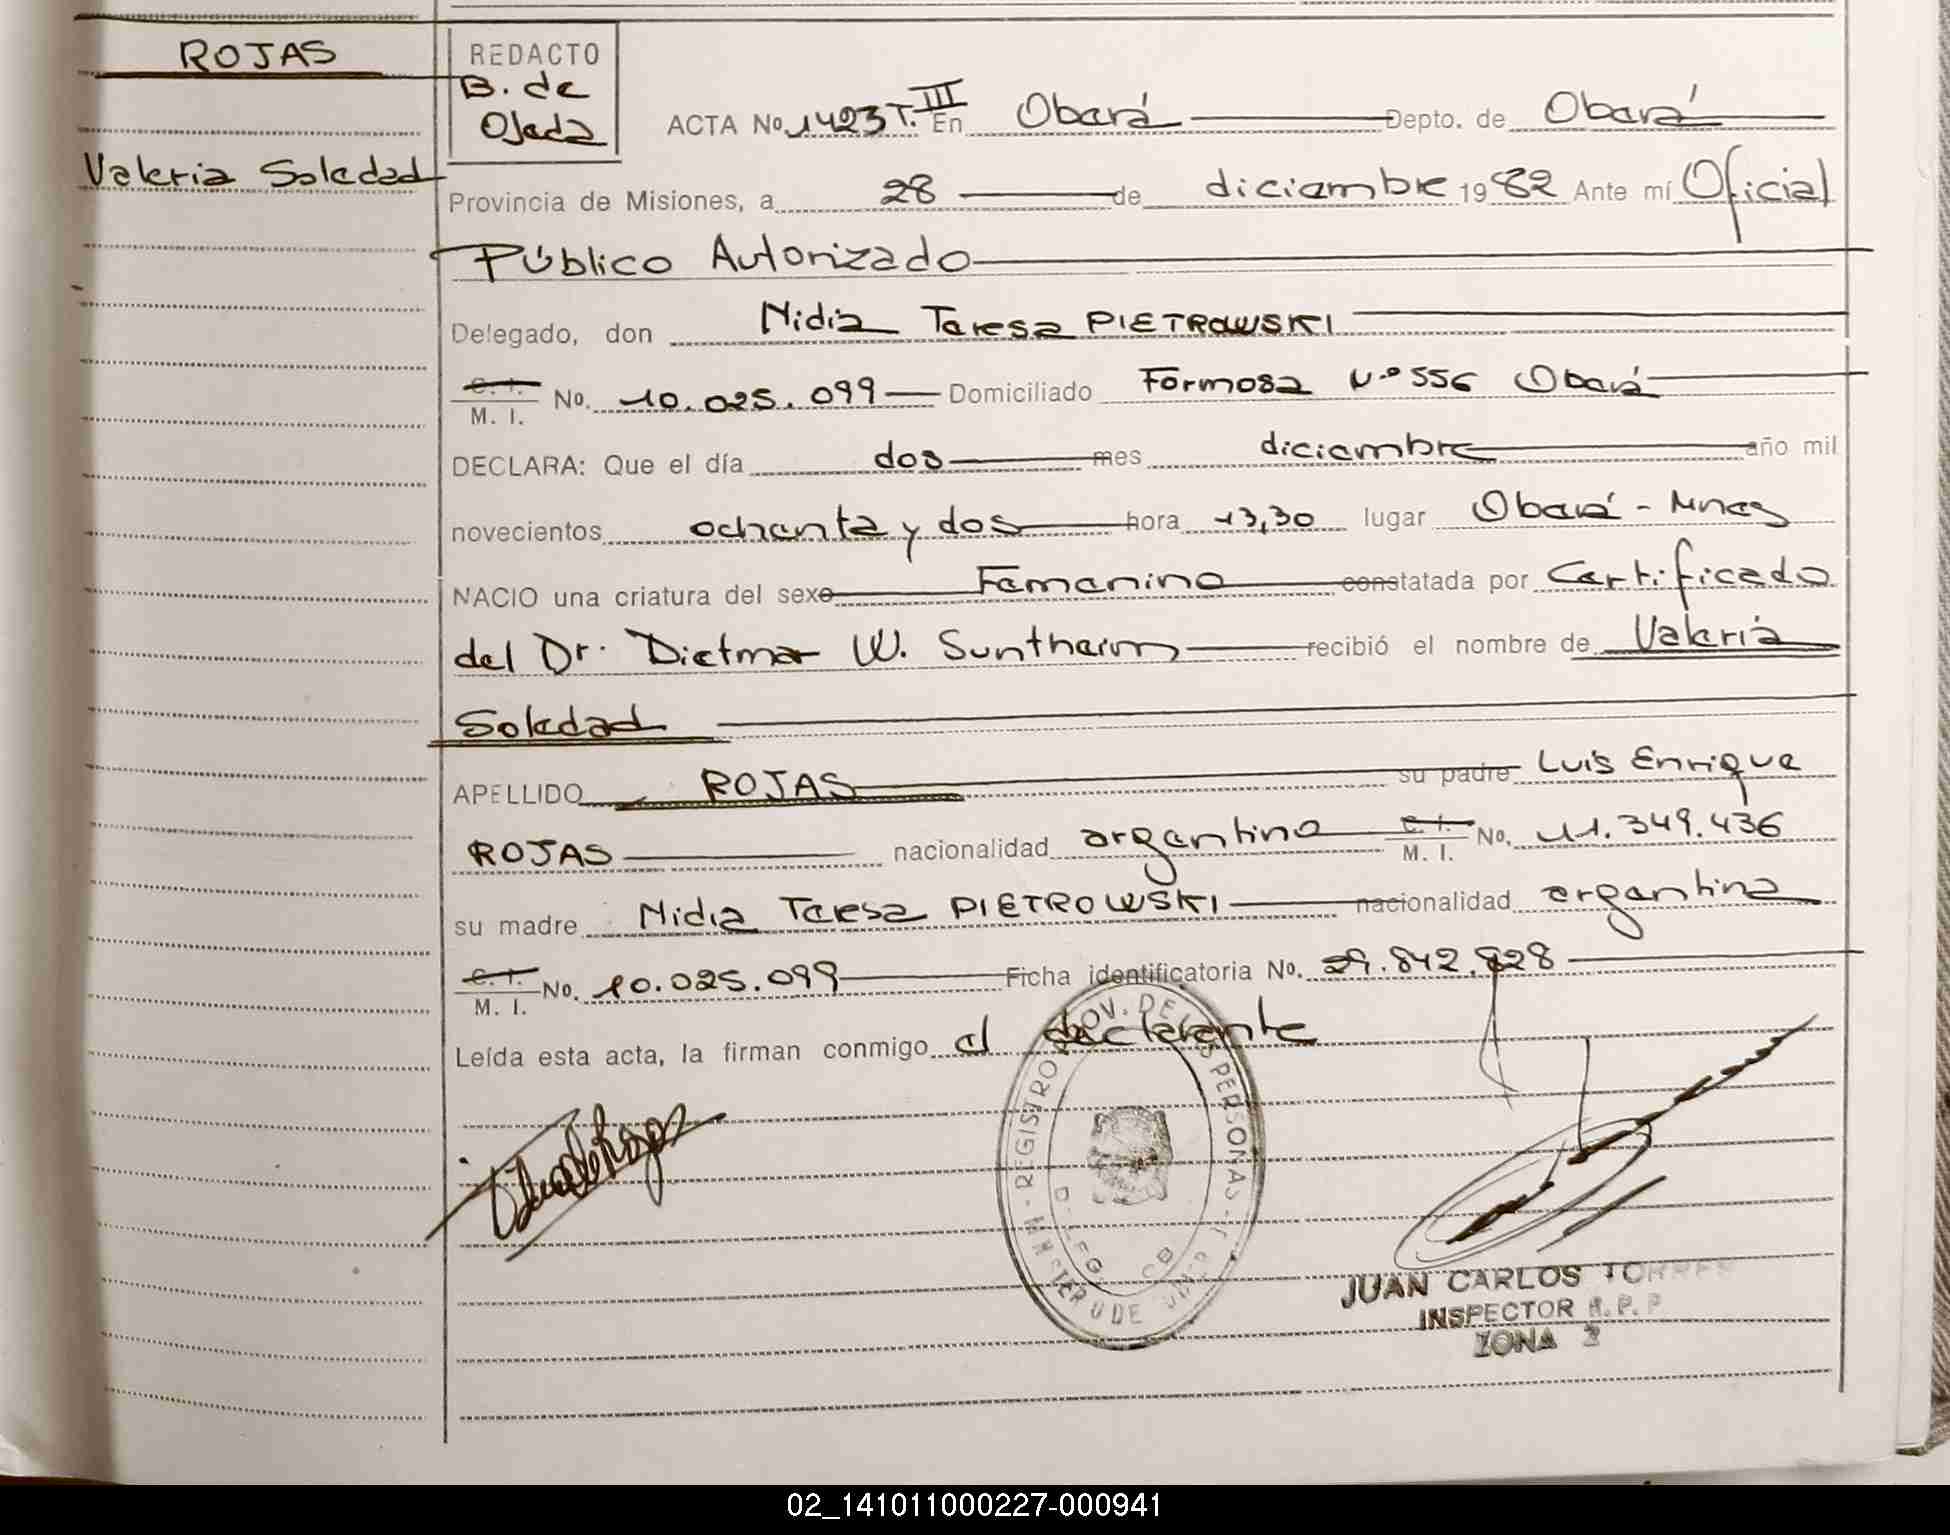 ROJAS
Valeria Soledad
REDACTO
B. de
Ojeda
ACTA No. 1423 T. III En Oberá Depto. de Oberá
Provincia de Misiones, a 28 de diciembre 1982 Ante mí Oficial
Público Autorizado
Delegado, don Nidia Teresa PIETROWSKI
C. I.
M. I. No. 10.025.099 Domiciliado Formosa Nº 556 Oberá
DECLARA: Que el día dos mes diciembre año mil
novecientos ochenta y dos hora 13,30 lugar Oberá - Mnes
NACIO una criatura del sexo Femenino constatada por Certificado
del Dr. Dietmar W. Suntheim recibió el nombre de Valeria
Soledad
APELLIDO ROJAS su padre Luis Enrique
ROJAS nacionalidad argentino C. I. M. I. No. 11.349.436
su madre Nidia Teresa PIETROWSKI nacionalidad argentina
C. I.
M. I. No. 10.025.099 Ficha identificatoria No. 29.842.828
Leída esta acta, la firman conmigo el declarante
REGISTRO PROV. DE LAS PERSONAS
JUAN CARLOS TORRES
INSPECTOR R. P. P
ZONA 2
02_141011000227-000941